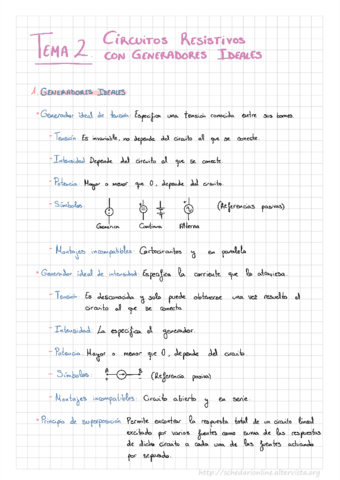 TEMA 2 CIRCUITOS RESISTIVOS
CON GENERADORES IDEALES
1. GENERADORES IDEALES
Generador ideal de tensión: Especifica una tensión conocida entre sus bornes.
- Tensión: Es invariable, no depende del circuito al que se conecte.
- Intensidad: Depende del circuito al que se conecte.
- Potencia: Mayor o menor que 0, depende del circuito.
- Símbolos: (Referencias pasivas)
Genérica Continua Alterna
- Montajes incompatibles: Cortocircuitos y en paralelo
Generador ideal de intensidad: Especifica la corriente que la atraviesa.
- Tensión: Es desconocida y solo puede obtenerse una vez resuelto el
circuito al que se conecta.
- Intensidad: La especifica el generador.
- Potencia: Mayor o menor que 0, depende del circuito.
- Símbolos: A B (Referencia pasiva)
- Montajes incompatibles: Circuito abierto y en serie
Principio de superposición: Permite encontrar la respuesta total de un circuito lineal
excitado por varias fuentes como suma de las respuestas
de dicho circuito a cada una de las fuentes actuando
por separado.
http://schedarionline.altervista.org